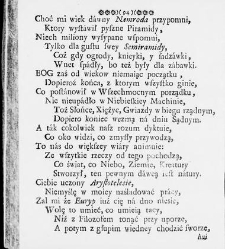 ( 94 )
Choć mi wiek dawny Nemroda przypomni,
Ktory wystawił pyszne Piramidy,
Niech miliony wysypane wspomni,
Tylko dla gustu swey Semiramidy,
Coż gdy ogrody, knieyki, y sadzawki,
Wniet spadły, bo też były dla zabawki.
BOG zaś od wiekow niemaiąc początku,
Dopieroż końca, z ktorym wszystko ginie,
Co postánowił w Wszechmocnym porządku,
Nie nieupádło w Niebieskiey Machinie,
Toż Słońce, Xiężyc, Gwiazdy w biegu rządnym,
Dopiero koniec wezmą ná dniu Sądnym.
A ták cokolwiek masz rozum dyktuie,
Co oko widzi, co zmysły przywodzą,
To nás do większey wiáry ánimuie:
Ze wszystkie rzeczy od tego pochodzą,
Co świát, co Niebo, Ziemie, Kreátury
Stworzył, ten pewnym dáwcą iest nátury.
Ciebie uczony Arystotelesie,
Niemyślę w moiey násladowáć pracy,
Zal mi że Euryp iuż cię ná dno niesie,
Wolę to umieć, co umieią tacy,
Niż z Filozofem tonąć przy uporze,
A potym z głupim wiedney chodzić sforze,